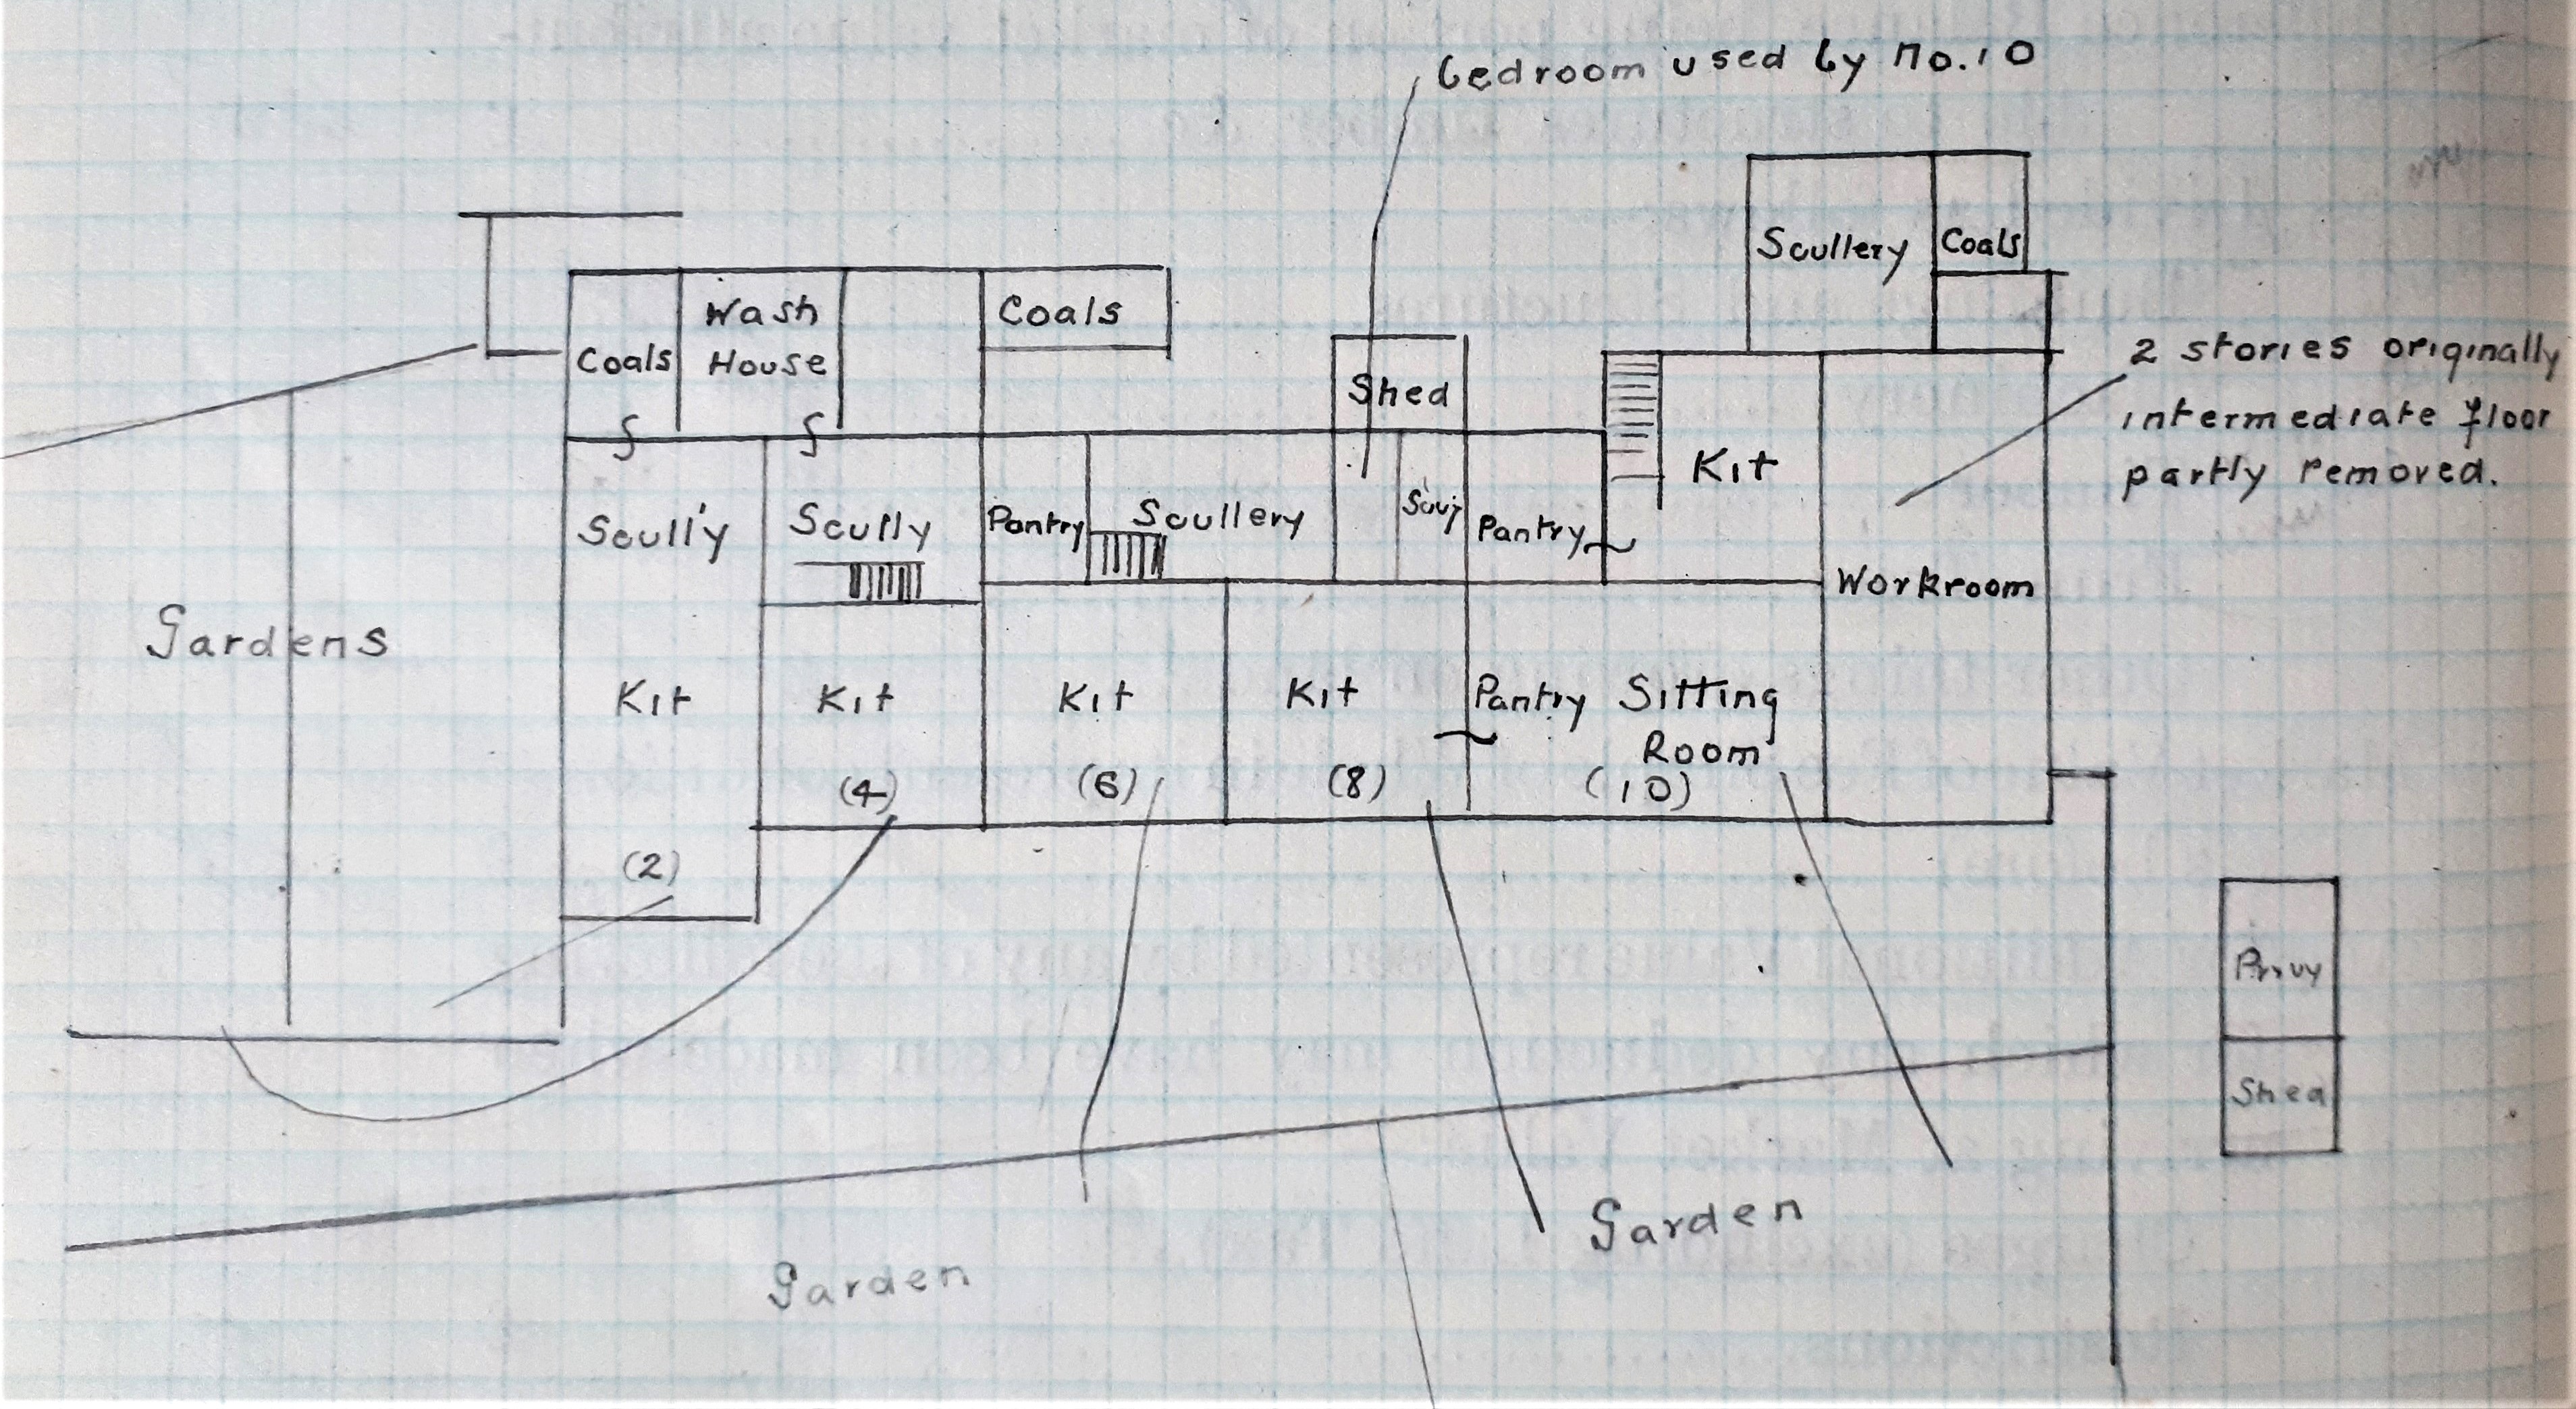 bedroom used by No.10
Scullery
Coals
Wash
House
Coals
Coals
Shed
2 stories originally
intermediate floor
partly removed.
Kit
Scull'y
Scully
Pantry
Scullery
Pantry
Workroom
Gardens
Kit
Kit
Kit
Kit
Pantry
Sitting
Room
(2)
(4)
(6)
(8)
(10)
Privy
Shed
Garden
Garden